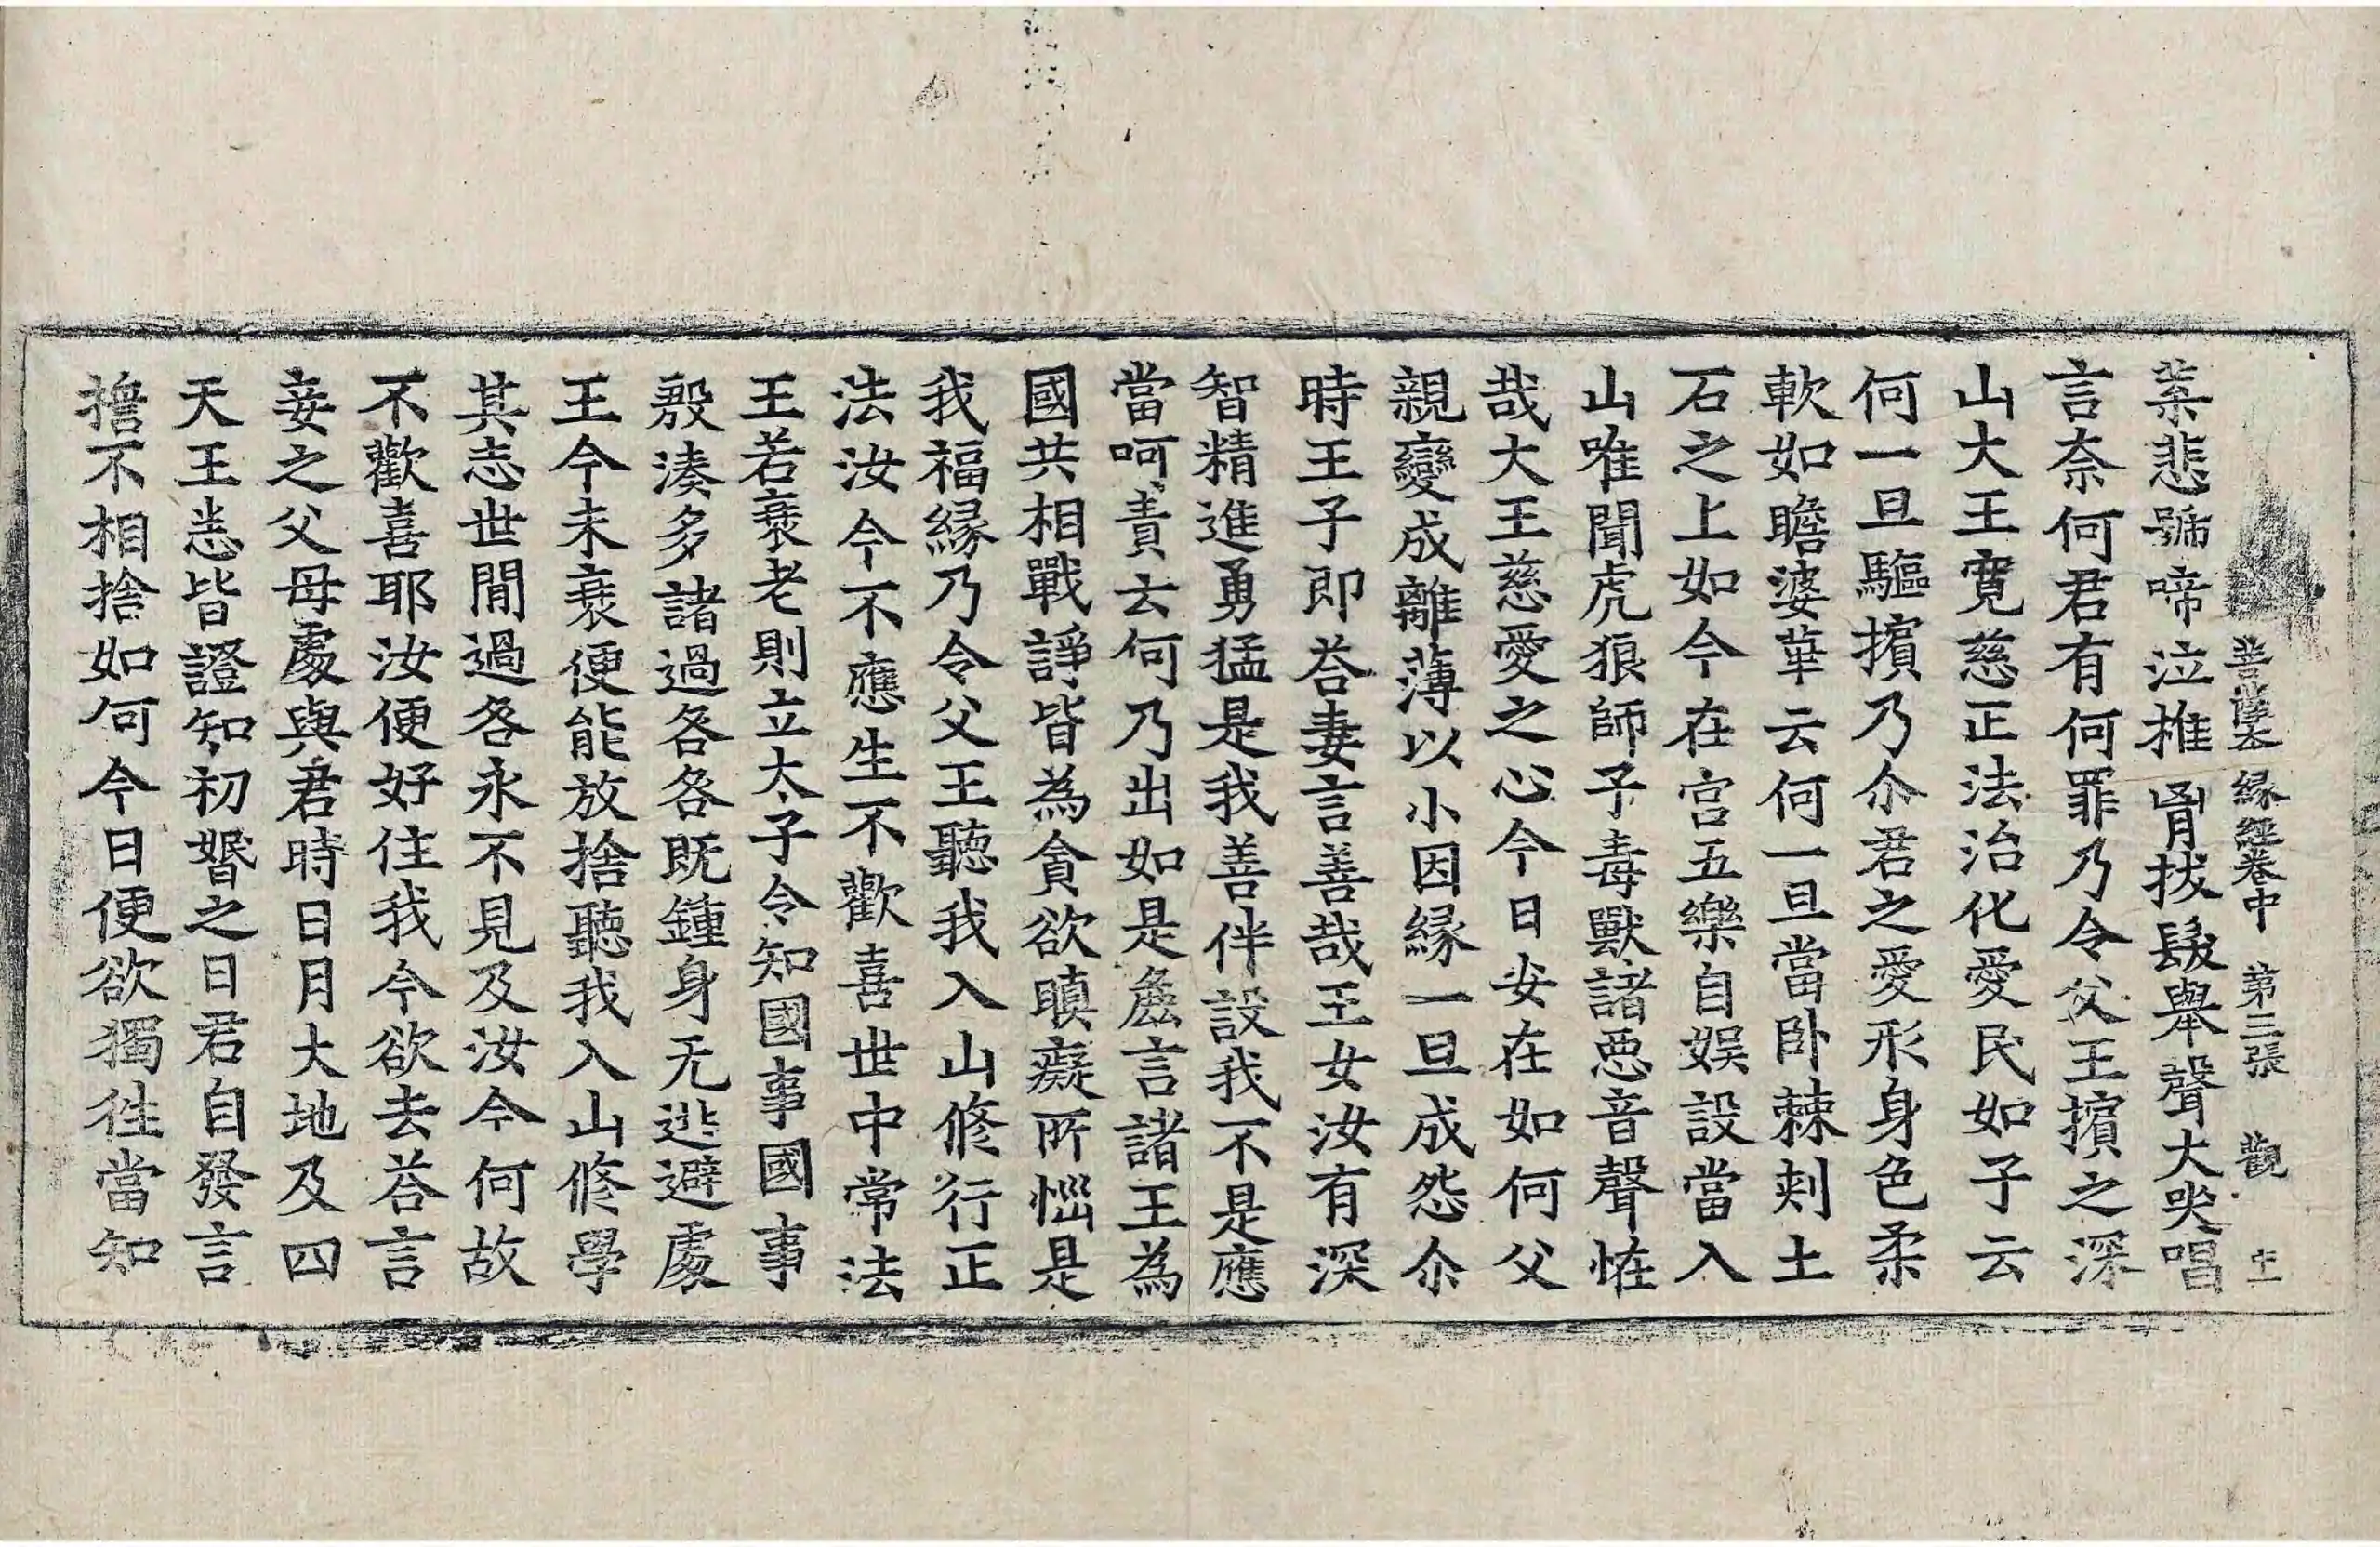 菩薩本縁經卷中　第三張　觀　十一
業悲號啼泣推胷拔髮舉聲大哭唱
言奈何君有何罪乃令父王擯之深
山大王寬慈正法治化愛民如子云
何一旦驅擯乃尒君之愛形身色柔
軟如瞻婆華云何一旦當卧棘刾土
石之上如今在宮五樂自娛設當入
山唯聞虎狼師子毒獸諸惡音聲恠
哉大王慈愛之心今日安在如何父
親變成離薄以小因緣一旦成怨尒
時王子即荅妻言善哉王女汝有深
智精進勇猛是我善伴設我不是應
當呵責云何乃出如是麁言諸王為
國共相戰諍皆為貪欲瞋癡所惱是
我福緣乃令父王聽我入山修行正
法汝今不應生不歡喜世中常法
王若衰老則立太子令知國事國事
殷湊多諸過咎咎既鍾身无逃避處
王今未衰便能放捨聽我入山修學
其志世間過咎永不見及汝今何故
不歡喜耶汝便好住我今欲去荅言
妾之父母處與君時日月大地及四
天王悉皆證知初婚之日君自發言
擔不相捨如何今日便欲獨徃當知